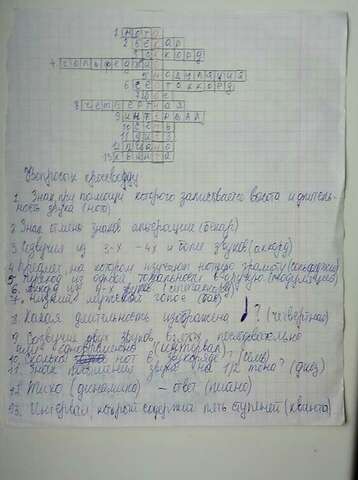 1 НОТА
2 БЕКАР
3 АККОРД
4 СОЛЬФЕДЖИО
5 МОДУЛЯЦИЯ
6 СЕПТАККОРД
7 БАС
8 ЧЕТВЕРТНАЯ
9 ИНТЕРВАЛ
10 СЕМЬ
11 ДИЕЗ
12 ПИАНО
13 КВИНТА
Вопросы к кроссворду
1. Знак при помощи которого записывается высота и длитель-
ность звука (нота)
2 Знак отмены знаков альтерации (бекар)
3 Созвучия из 3-х -4х и более звуков (аккорд)
4 Предмет, на котором изучают нотную грамоту (сольфеджио)
5 Переход из одной тональности в другую (модуляция)
6. Аккорд из 4-х звуков (септаккорд)
7. Низкий мужской голос (бас)
8 Какая длительность изображена ? (четвертная)
9 Созвучие двух звуков взятых последовательно
или одновременно (интервал)
10 Сколько нот в звукоряде? (семь)
11. Знак повышения звука на 1/2 тона? (диез)
12 Тихо (динамика) - ответ (пиано)
13. Интервал, который содержит пять ступеней (квинта)